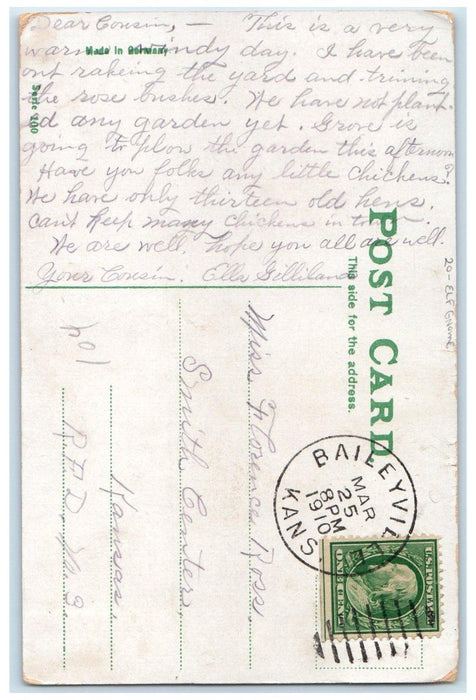 Dear Cousin, – This is a very
warm windy day. I have been
out rakeing the yard and triming
the rose bushes. We have not plant-
ed any garden yet. Grove is
going to plow the garden this afternoon
Have you folks any little chickens?
We have only thirteen old hens.
cant keep many chickens in town.
We are well, hope you all are well.
Your Cousin. Ella Gilliland
Made in Germany
Serie 200
POST CARD
This side for the address.
20- ELF GNOME
Miss Florence Ross.
Smith Center,
Kansas.
R.F.D. No. 3.
104
BAILEYVILLE
MAR
25
8PM
1910
KANS
U.S. POSTAGE
ONE CENT